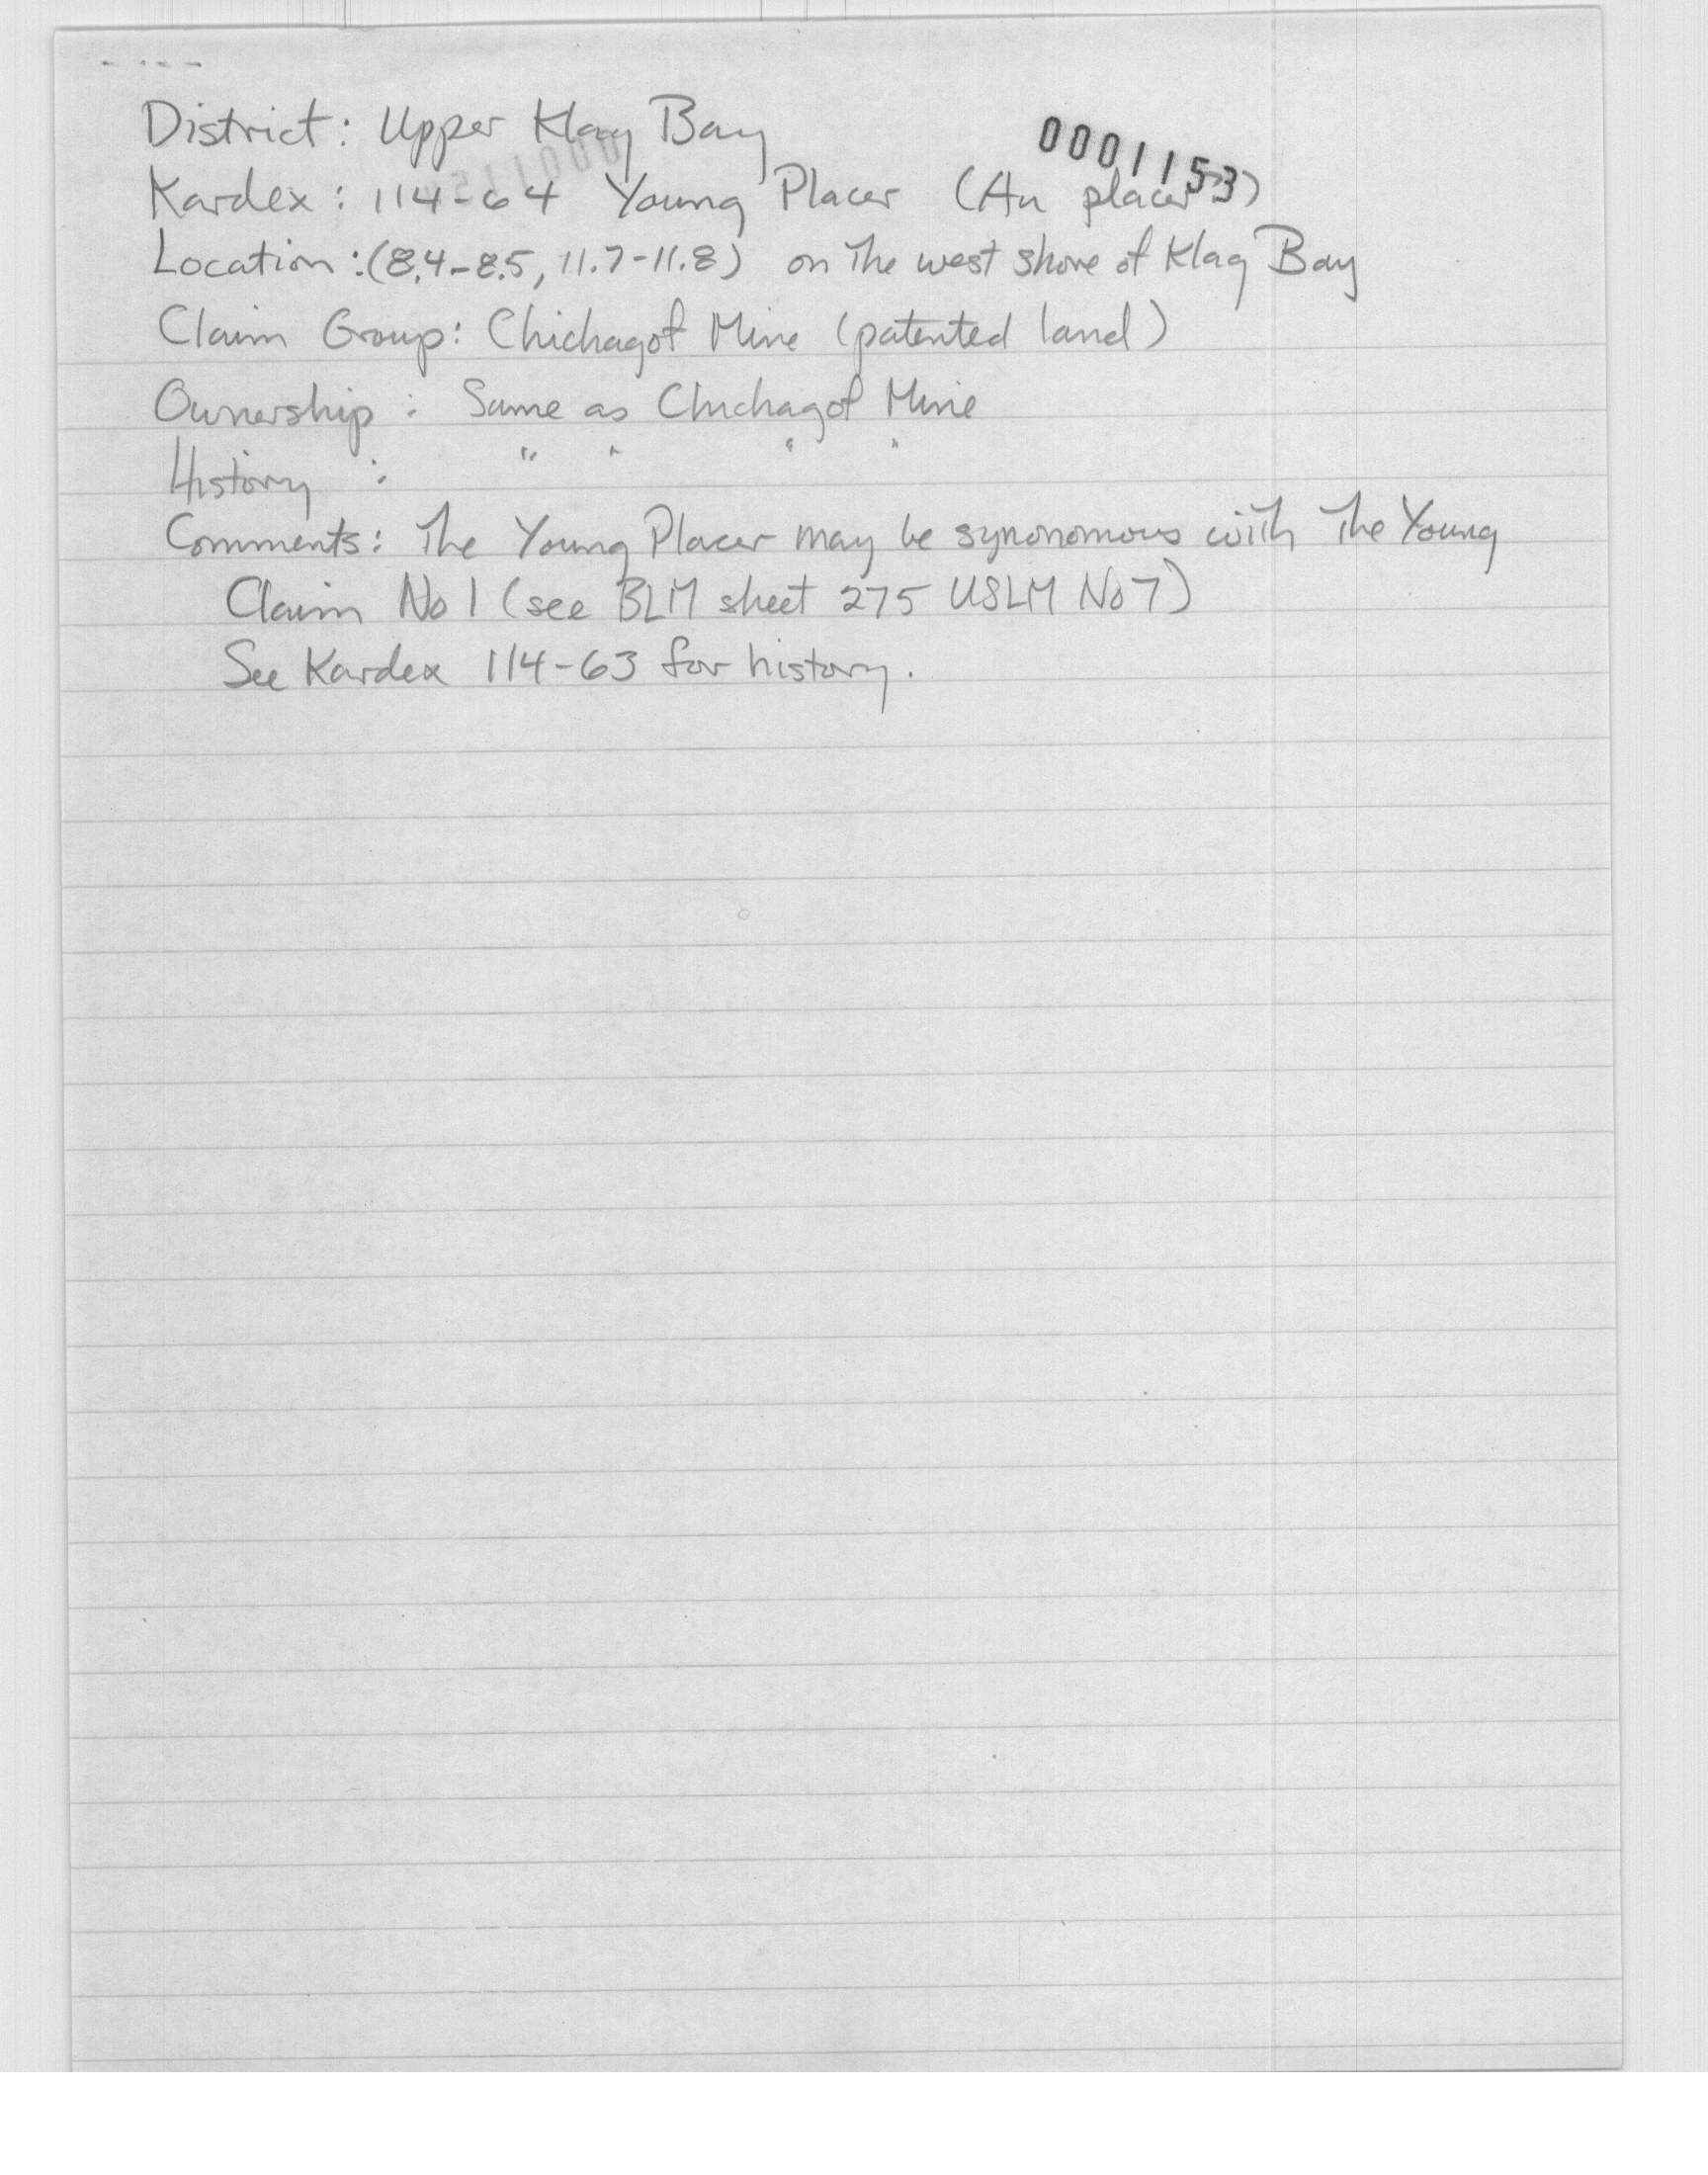 District: Upper Klag Bay
0001153
Kardex: 114-64 Young Placer (Au placer)
Location: (8.4-8.5, 11.7-11.8) on the west shore of Klag Bay
Claim Group: Chichagof Mine (patented land)
Ownership: Same as Chichagof Mine
History : " " " "
Comments: The Young Placer may be synonomous with the Young
Claim No 1 (see BLM sheet 275 USLM No 7)
See Kardex 114-63 for history.